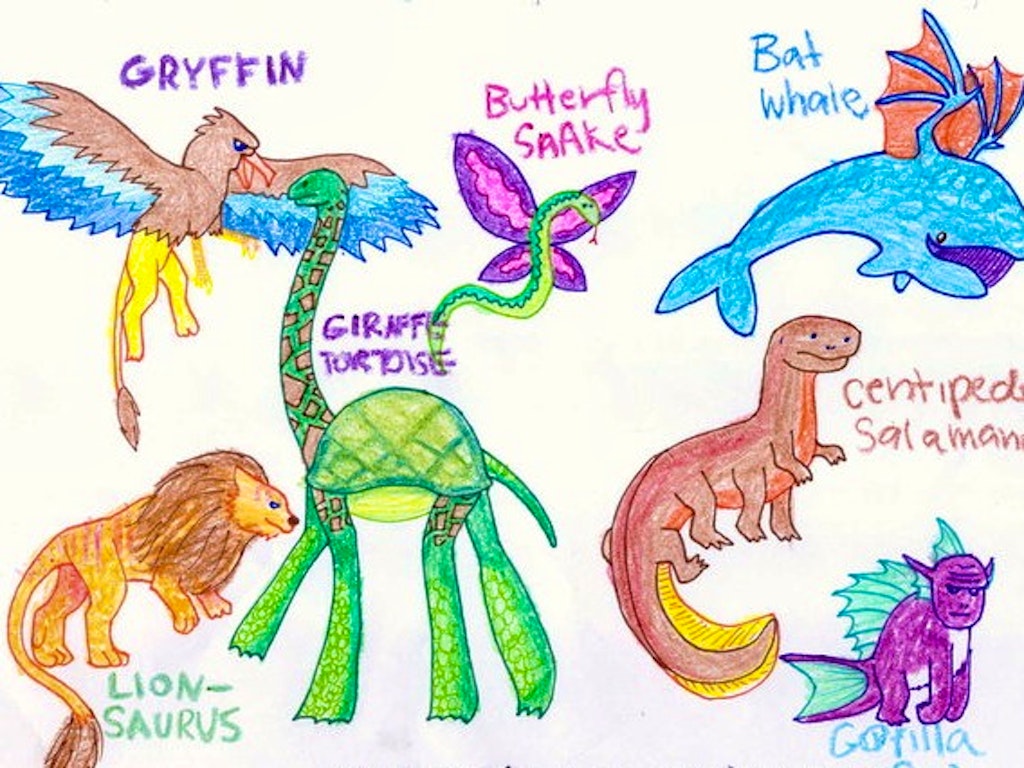 GRYFFIN
Butterfly
SnAke
Bat
whale
GIRAFFE
TORTOISE
centipede
Salaman
LION-
SAURUS
Gorilla